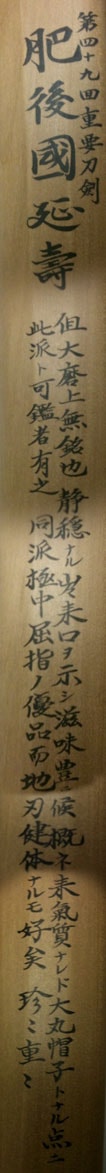 第四十九回重要刀剣
肥後國延壽
但大磨上無銘也 静穏ナル出来口ヲ示シ滋味豊候 概ネ来氣質ナレド大丸帽子トナル点ニ
此派ト可鑑者有之 同派極中屈指ノ優品而地刃健体ナルモ好矣 珍〻重〻